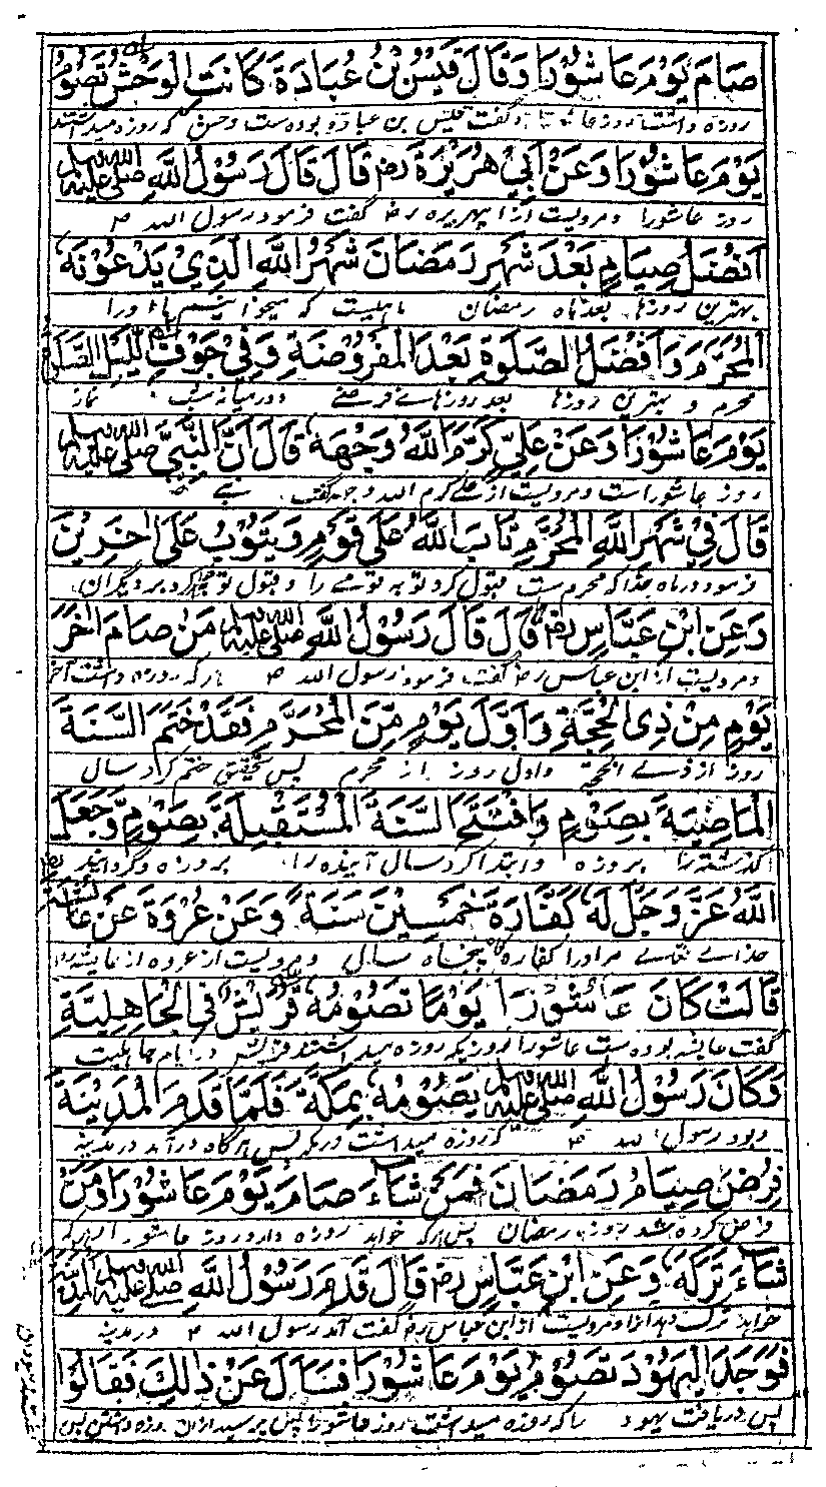 صَامَ يَوْمَ عَاشُوْرَا وَقَالَ قَيْسُ بْنُ عُبَادَةَ كَانَتِ الْوَحْشُ تَصُوْمُ
روزه داشت روز عاشورا و گفت قیس بن عباده بوده ست وحش که روزه میداشتند
يَوْمَ عَاشُوْرَا وَعَنْ اَبِيْ هُرَيْرَةَ رض قَالَ قَالَ رَسُوْلُ اللّٰهِ صلى الله عليه وسلم
روز عاشورا و مرویست از ابهریره رض گفت فرمود رسول الله ص
اَفْضَلُ صِيَامٍ بَعْدَ شَهْرِ رَمَضَانَ شَهْرُ اللّٰهِ الَّذِيْ يَدْعُوْنَهُ
بهترین روزها بعد ماه رمضان ماهیست که میخوانیم ماه ورا
الْمُحَرَّمَ وَاَفْضَلُ الصَّلٰوةِ بَعْدَ الْمَفْرُوْضَةِ وَفِيْ جَوْفِ لَّيْلِ الصَّلٰوةُ
محرم و بهترین روزها بعد روزهای فرضے و درمیانه شب نماز
يَوْمَ عَاشُوْرَا وَعَنْ عَلِيٍّ كَرَّمَ اللّٰهُ وَجْهَهُ قَالَ اَنَّ النَّبِيَّ صلى الله عليه وسلم
روز عاشوراست و مرویست از علی کرم الله وجهه گفت نبے
قَالَ فِيْ شَهْرِ اللّٰهِ الْمُحَرَّمِ تَابَ اللّٰهُ عَلٰى قَوْمٍ وَيَتُوْبُ عَلٰى اٰخَرِيْنَ
فرمود در ماه خدا که محرم ست قبول کرد توبه قومے را و قبول توبه کرد بر دیگران
وَعَنِ ابْنِ عَبَّاسٍ رض قَالَ قَالَ رَسُوْلُ اللّٰهِ صلى الله عليه وسلم مَنْ صَامَ اٰخِرَ
و مرویست از ابن عباس رض گفت فرمود رسول الله ص هر که روزه داشت آخر
يَوْمٍ مِنْ ذِى الْحِجَّةِ وَاَوَّلَ يَوْمٍ مِّنَ الْمُحَرَّمِ فَقَدْ خَتَمَ السَّنَةَ
روز از ذے الحجه و اول روز از محرم پس بتحقیق ختم کرد سال
الْمَاضِيَةَ بِصَوْمٍ وَافْتَتَحَ السَّنَةَ الْمُسْتَقْبِلَةَ بِصَوْمٍ وَّجَعَلَ
گذشته را بروزه و ابتدا کرد سال آینده را بروزه و گرداند
اللّٰهُ عَزَّ وَجَلَّ لَهُ كَفَّارَةَ خَمْسِيْنَ سَنَةً وَعَنْ عُرْوَةَ عَنْ عَائشة
خداے تعالے مر او را کفاره پنجاه سال و مرویست از عروه از عایشه
قَالَتْ كَانَ عَاشُوْرَا يَوْمًا تَصُوْمُهُ قُرَيْشٌ فِى الْجَاهِلِيَّةِ
گفت عایشه بوده ست عاشورا روزیکه روزه میداشتند قریش در ایام جاهلیت
وَكَانَ رَسُوْلُ اللّٰهِ صلى الله عليه وسلم يَصُوْمُهُ بِمَكَّةَ فَلَمَّا قَدَمَ الْمَدِيْنَةَ
و بود رسول الله ص که روزه میداشت در مکه پس هر گاه درآمد در مدینه
فُرِضَ صِيَامُ رَمَضَانَ فَمَنْ شَآءَ صَامَ يَوْمَ عَاشُوْرَا وَمَنْ
فرض کرده شد روزه رمضان پس هر که خواهد روزه دارد روز عاشورا و هر که
شَآءَ تَرَكَهُ وَعَنِ ابْنِ عَبَّاسٍ رض قَالَ قَدَمَ رَسُوْلُ اللّٰهِ صلى الله عليه وسلم المدينة
خواهد ترک دهد او را و مرویست از ابن عباس رض گفت آمد رسول الله ص در مدینه
فَوَجَدَ الْيَهُوْدَ تَصُوْمُ يَوْمَ عَاشُوْرَا فَسَاَلَ عَنْ ذٰلِكَ فَقَالُوْا
پس دریافت یهود را که روزه میداشت روز عاشورا پس پرسید از آن روزه داشتن پس